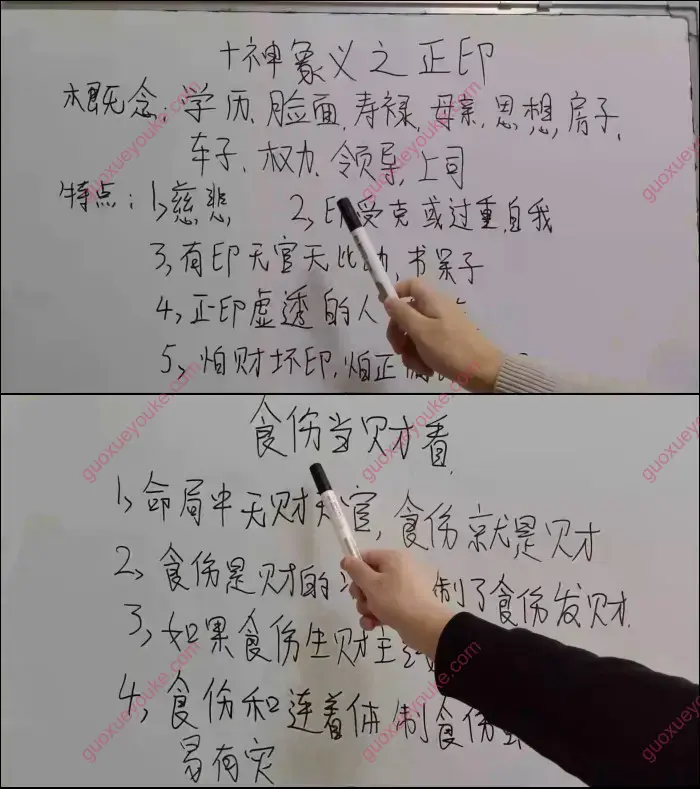 十神象义之正印
概念：学历、脸面、寿禄、母亲、思想、房子、
车子、权力、领导、上司
特点：1、慈悲 2、印受克或过重，自我
3、有印无官无比劫，书呆子
4、正印虚透的人
5、怕财坏印，怕正
食伤当财看
1、命局中无财无官，食伤就是财
2、食伤是财的 制了食伤发财
3、如果食伤生财主
4、食伤和连着体 制食伤
易有灾
guoxueyouke.com
guoxueyouke.com
guoxueyouke.com
guoxueyouke.com
guoxueyouke.com
guoxueyouke.com
guoxueyouke.com
guoxueyouke.com
guoxueyouke.com
guoxueyouke.com
guoxueyouke.com
guoxueyouke.com